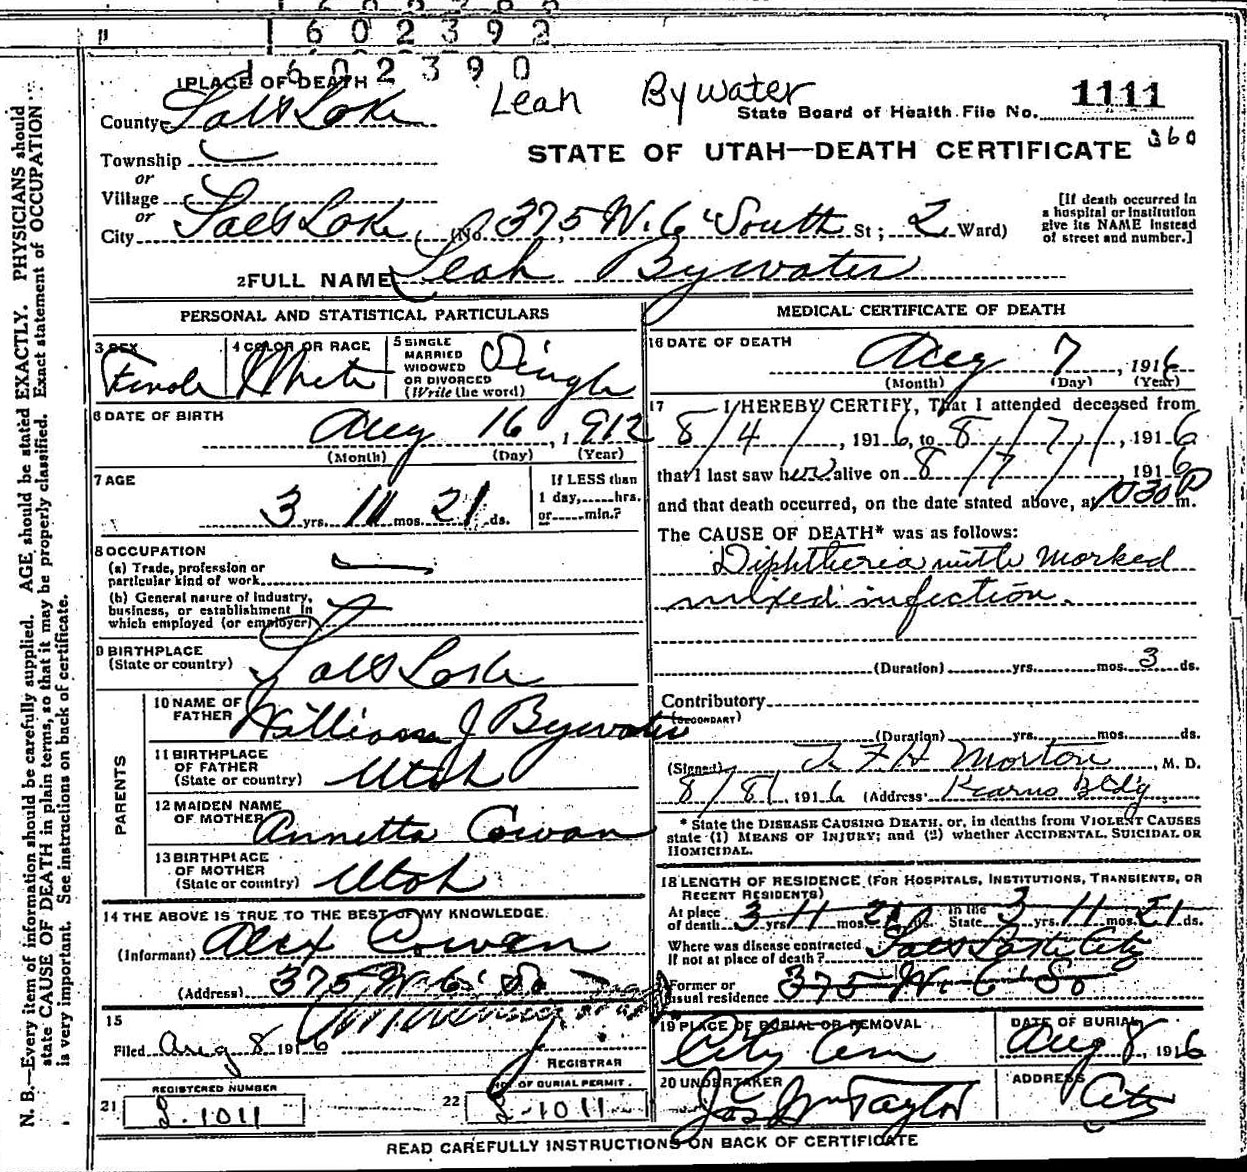 1602392
1602390
Leah Bywater
1 PLACE OF DEATH
County Salt Lake
State Board of Health File No. 1111
360
STATE OF UTAH—DEATH CERTIFICATE
Township
or
Village
or
City Salt Lake (No. 375 W. 6 South St; 2 Ward)
[If death occurred in
a hospital or institution
give its NAME instead
of street and number.]
2 FULL NAME Leah Bywater
PERSONAL AND STATISTICAL PARTICULARS
3 SEX Female
4 COLOR OR RACE White
5 SINGLE
MARRIED
WIDOWED
OR DIVORCED
(Write the word)
Single
6 DATE OF BIRTH
Aug 16, 1912
(Month) (Day) (Year)
7 AGE
3 yrs. 11 mos. 21 ds.
If LESS than
1 day, hrs.
or min.?
8 OCCUPATION
(a) Trade, profession or
particular kind of work
(b) General nature of industry,
business, or establishment in
which employed (or employer)
9 BIRTHPLACE
(State or country) Salt Lake
PARENTS
10 NAME OF
FATHER William J Bywater
11 BIRTHPLACE
OF FATHER
(State or country) Utah
12 MAIDEN NAME
OF MOTHER Annetta Cowan
13 BIRTHPLACE
OF MOTHER
(State or country) Utah
14 THE ABOVE IS TRUE TO THE BEST OF MY KNOWLEDGE.
(Informant) Alex Cowan
(Address) 375 W 6 So
15
Filed Aug 8 1916
REGISTRAR
REGISTERED NUMBER
21 S-1011
NO. OF BURIAL PERMIT
22 S-1011
MEDICAL CERTIFICATE OF DEATH
16 DATE OF DEATH
Aug 7, 1916
(Month) (Day) (Year)
17 I HEREBY CERTIFY, That I attended deceased from
8/4/, 1916, to 8/7/, 1916
that I last saw her alive on 8/7/, 1916
and that death occurred, on the date stated above, at 1030 P m.
The CAUSE OF DEATH* was as follows:
Diphtheria with marked
mixed infection.
(Duration) yrs. mos. 3 ds.
Contributory
(SECONDARY)
(Duration) yrs. mos. ds.
(Signed) F H Morton, M. D.
8/8/ 1916 (Address) Kearns Bldg
* State the DISEASE CAUSING DEATH, or, in deaths from VIOLENT CAUSES
state (1) MEANS OF INJURY; and (2) whether ACCIDENTAL, SUICIDAL OR
HOMICIDAL.
18 LENGTH OF RESIDENCE (FOR HOSPITALS, INSTITUTIONS, TRANSIENTS, OR
RECENT RESIDENTS)
At place
of death 3 yrs. 11 mos. 21 ds. In the State 3 yrs. 11 mos. 21 ds.
Where was disease contracted
If not at place of death? Salt Lake City
Former or
usual residence 375 W. 6 So
19 PLACE OF BURIAL OR REMOVAL
City Cem
DATE OF BURIAL
Aug 8, 1916
20 UNDERTAKER
Jos Wm Taylor
ADDRESS
City
READ CAREFULLY INSTRUCTIONS ON BACK OF CERTIFICATE
N. B.—Every item of information should be carefully supplied. AGE should be stated EXACTLY. PHYSICIANS should
state CAUSE OF DEATH in plain terms, so that it may be properly classified. Exact statement of OCCUPATION
is very important. See instructions on back of certificate.